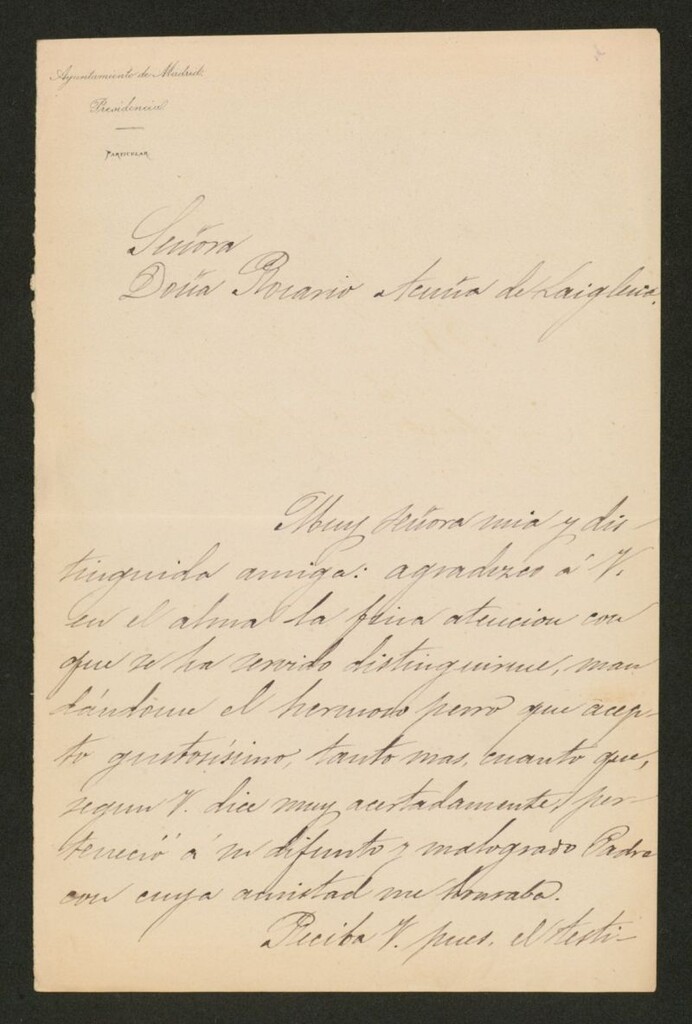 Ayuntamiento de Madrid.
Presidencia
PARTICULAR
Señora
Doña Rosario Acuña de Laiglesia.
Muy señora mia y dis-
tinguida amiga: agradezco á V.
en el alma la fina atencion con
que se ha servido distinguirme, man
dándome el hermoso perro que acep-
to gustosísimo, tanto mas, cuanto que,
segun V. dice muy acertadamente, per-
teneció á su difunto y malogrado Padre
con cuya amistad me honraba.
Reciba V. pues, el testi-